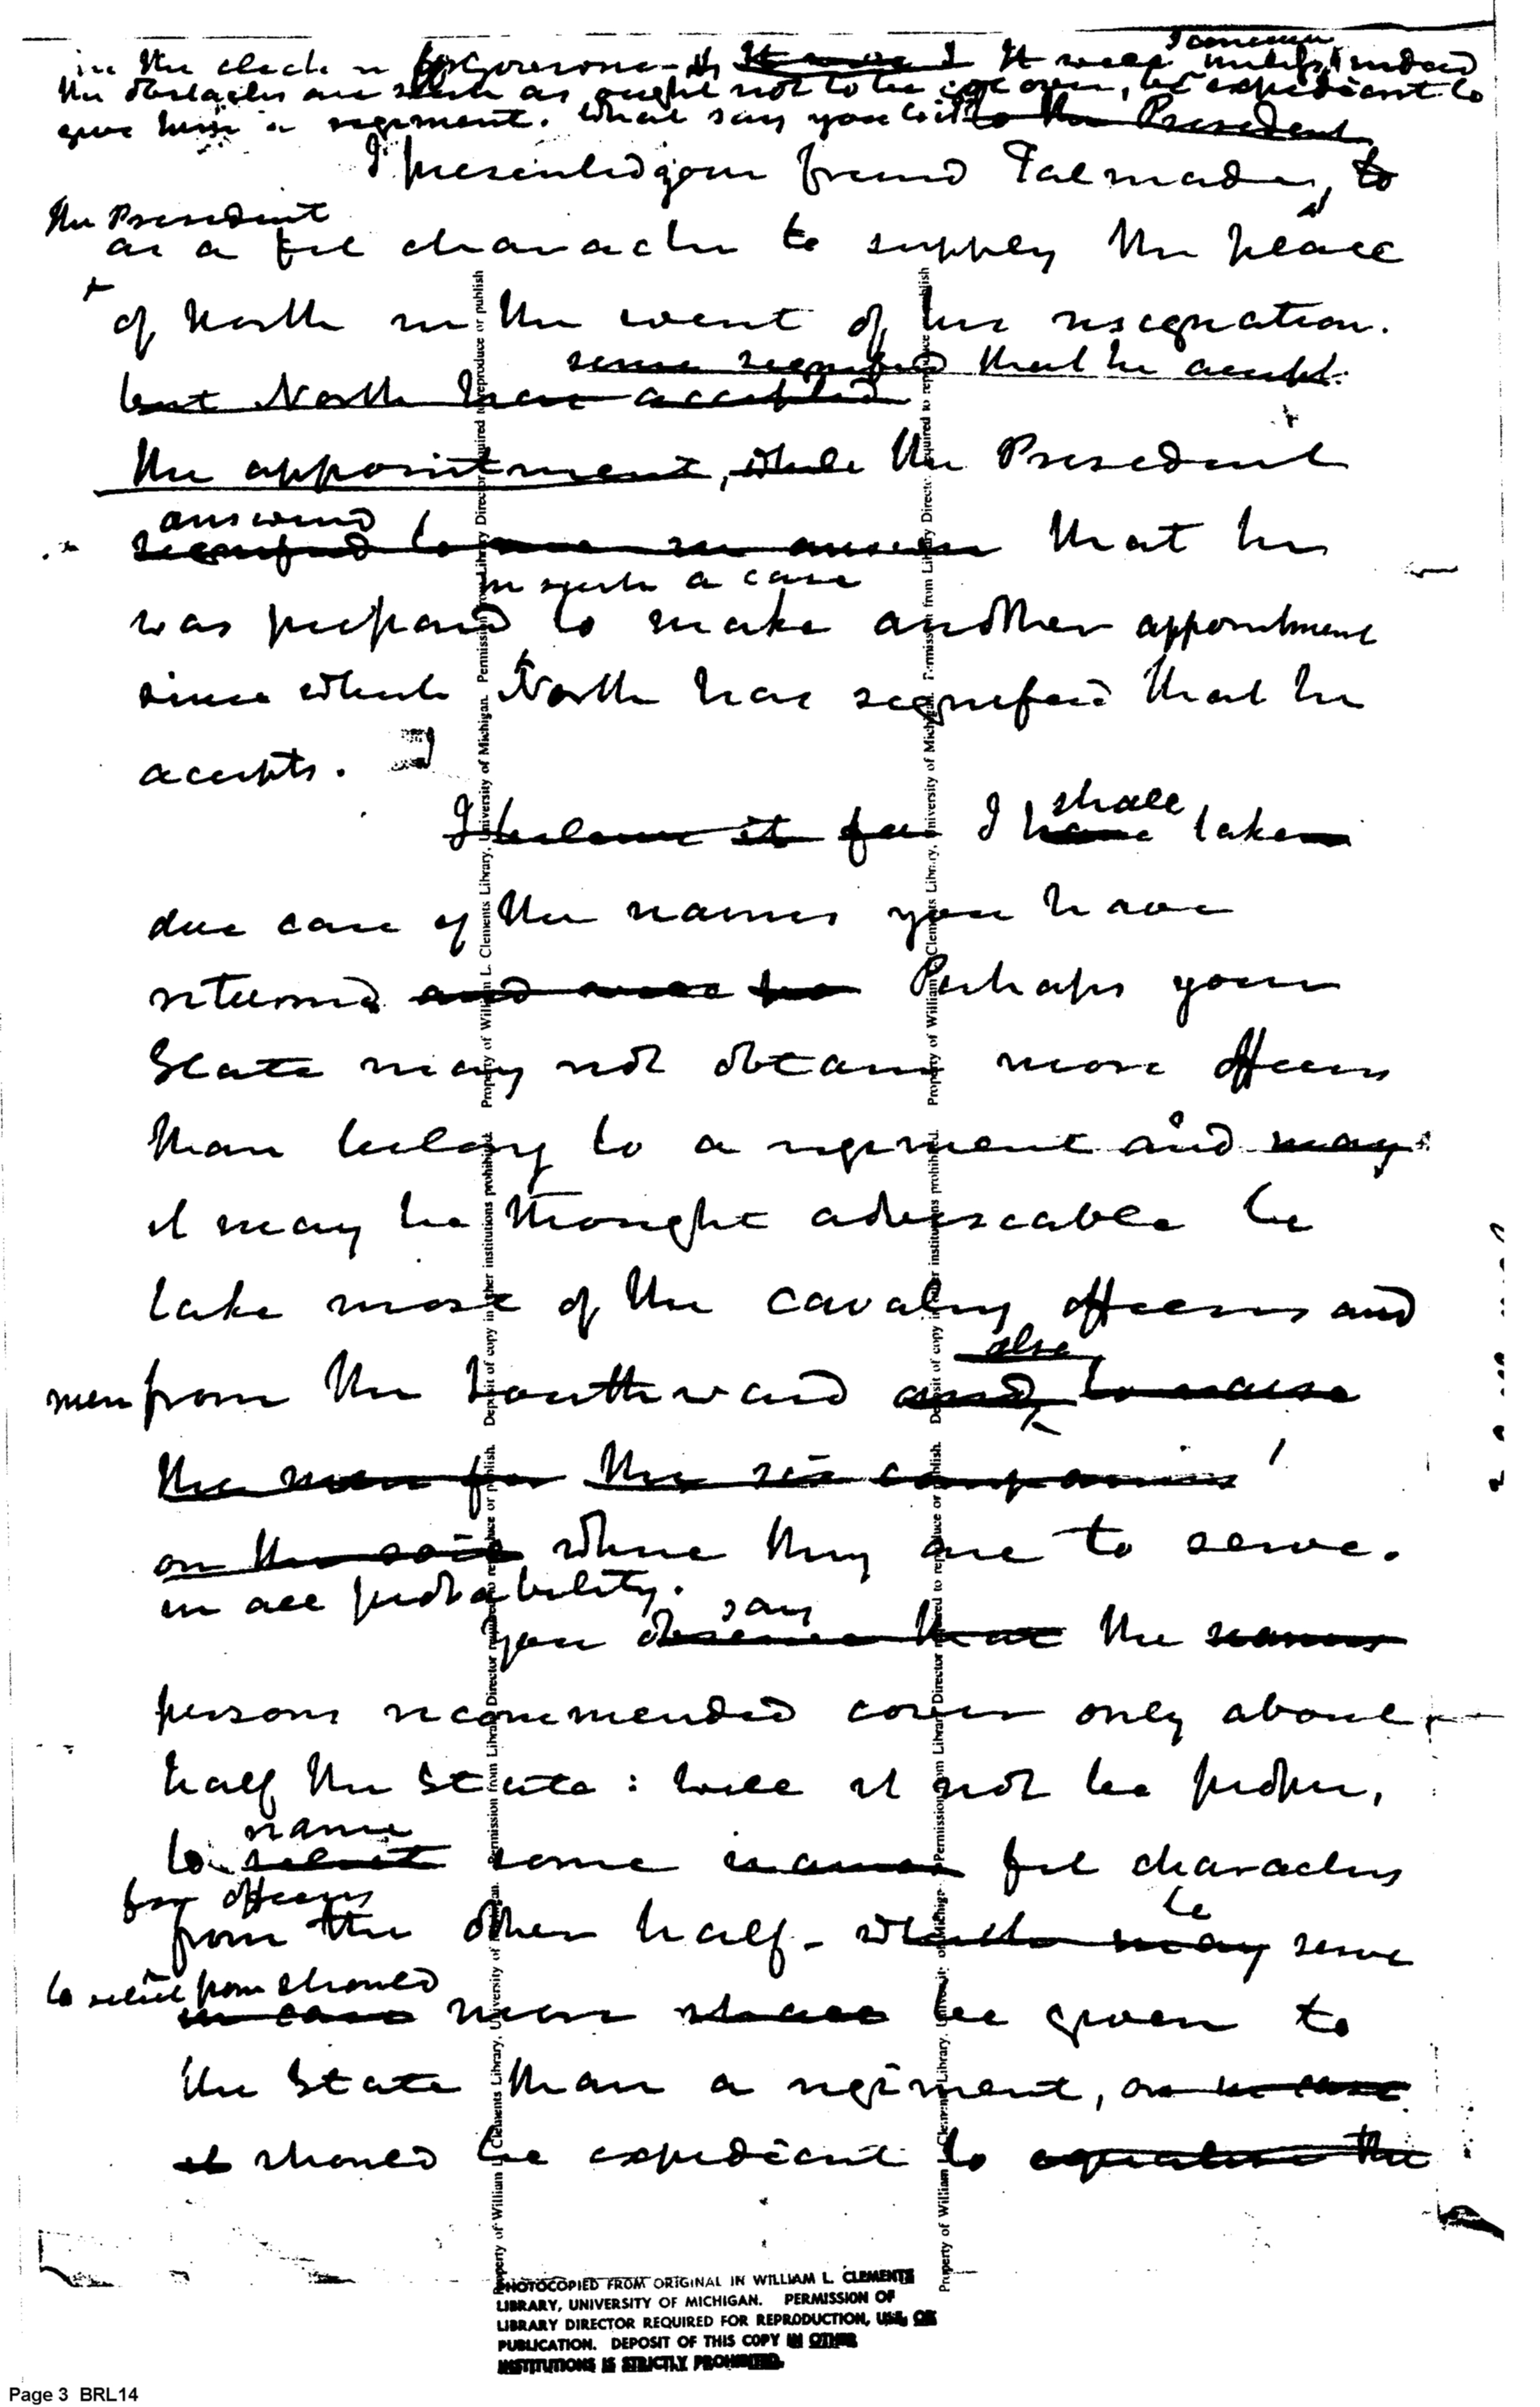 in the electn for Governor It were I It well unless indeed
the obstacles are such as ought not to be got over, be expedient to
give him a regiment. What say you to it to the President
I presented your friend Talmadge, to
the President
as a fit character to supply the place
of North in the event of his resignation.
since signified that he accept.
but North have accepted
the appointment, while the President
answered
signified to me in answer that he
in such a case
was prepared to make another appointment
since which North has signified that he
accepts.
shall
I believe it for I have taken
due care of the names you have
returned and Perhaps your
State may not obtain more officers
than belong to a regiment and may
it may be thought adviseable to
take most of the cavalry officers and
also
men from the Southward and to raise
the men for the six companies
on the said where they are to serve.
in all probability.
say
you observe that the names
persons recommended cover only about
half the State: will it not be proper,
name
to select some names fit characters
for officers
to
from the other half - which may serve
to select from should
in case more shall be given to
the State than a regiment, or in case
it should be expedient to equalise the
PHOTOCOPIED FROM ORIGINAL IN WILLIAM L. CLEMENTS
LIBRARY, UNIVERSITY OF MICHIGAN. PERMISSION OF
LIBRARY DIRECTOR REQUIRED FOR REPRODUCTION, USE, OR
PUBLICATION. DEPOSIT OF THIS COPY IN OTHER
INSTITUTIONS IS STRICTLY PROHIBITED.
Property of William L. Clements Library, University of Michigan. Permission from Library Director required to reproduce or publish. Deposit of copy in other institutions prohibited.
Page 3 BRL14